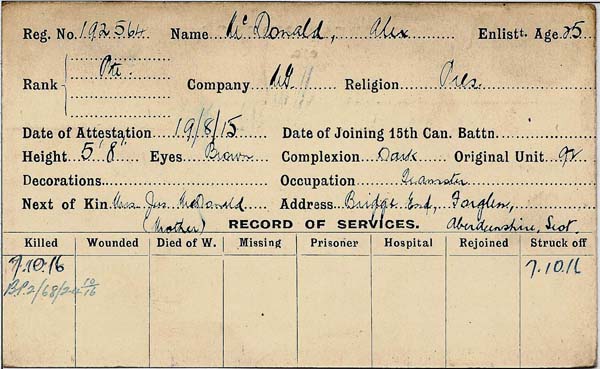 Reg. No. 192564 Name Mc Donald, Alex Enlistt. Age 25
Rank Pte. Company Religion Pres.
Date of Attestation 19/8/15 Date of Joining 15th Can. Battn.
Height 5' 8" Eyes Brown Complexion Dark Original Unit 92
Decorations Occupation Teamster
Next of Kin Mrs Jas. McDonald Address Bridge End, Forglen,
(Mother) RECORD OF SERVICES. Aberdeenshire, Scot.
Killed Wounded Died of W. Missing Prisoner Hospital Rejoined Struck off
7.10.16 7.10.16